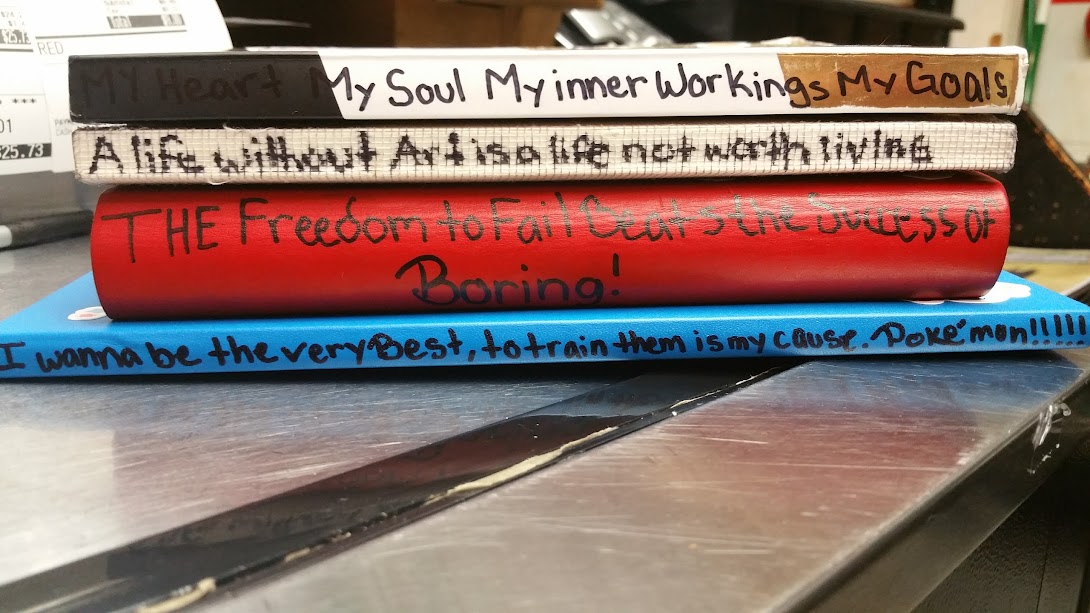 $25.73
RED
Total
01
25.73
MY Heart My Soul My inner Workings My Goals
A life without Art is a life not worth living
THE Freedom to Fail Beats the Success OF
Boring!
I wanna be the very Best, to train them is my cause. Pokémon!!!!!